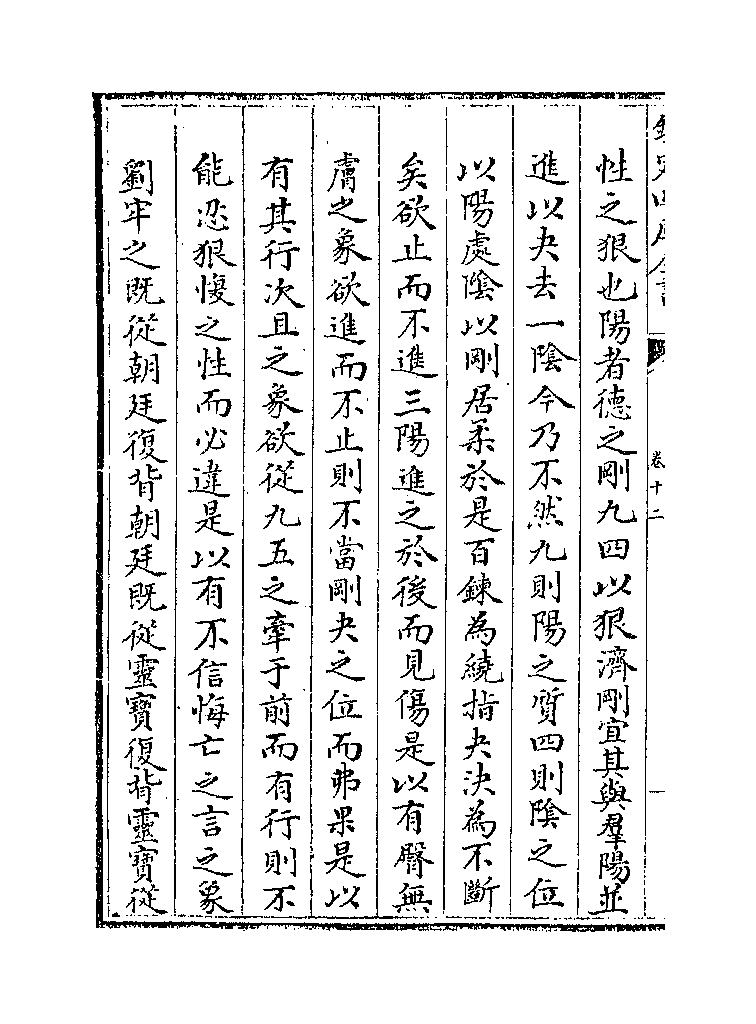 性之狠也陽者德之剛九四以狠濟剛宜其與羣陽並
進以夬去一陰今乃不然九則陽之質四則陰之位
以陽處陰以剛居柔於是百鍊為繞指夬決為不斷
矣欲止而不進三陽進之於後而見傷是以有臀無
膚之象欲進而不止則不當剛夬之位而弗果是以
有其行次且之象欲從九五之牽于前而有行則不
能忍狠愎之性而必違是以有不信悔亡之言之象
劉牢之既從朝廷復背朝廷既從靈寶復背靈寶從
卷十二